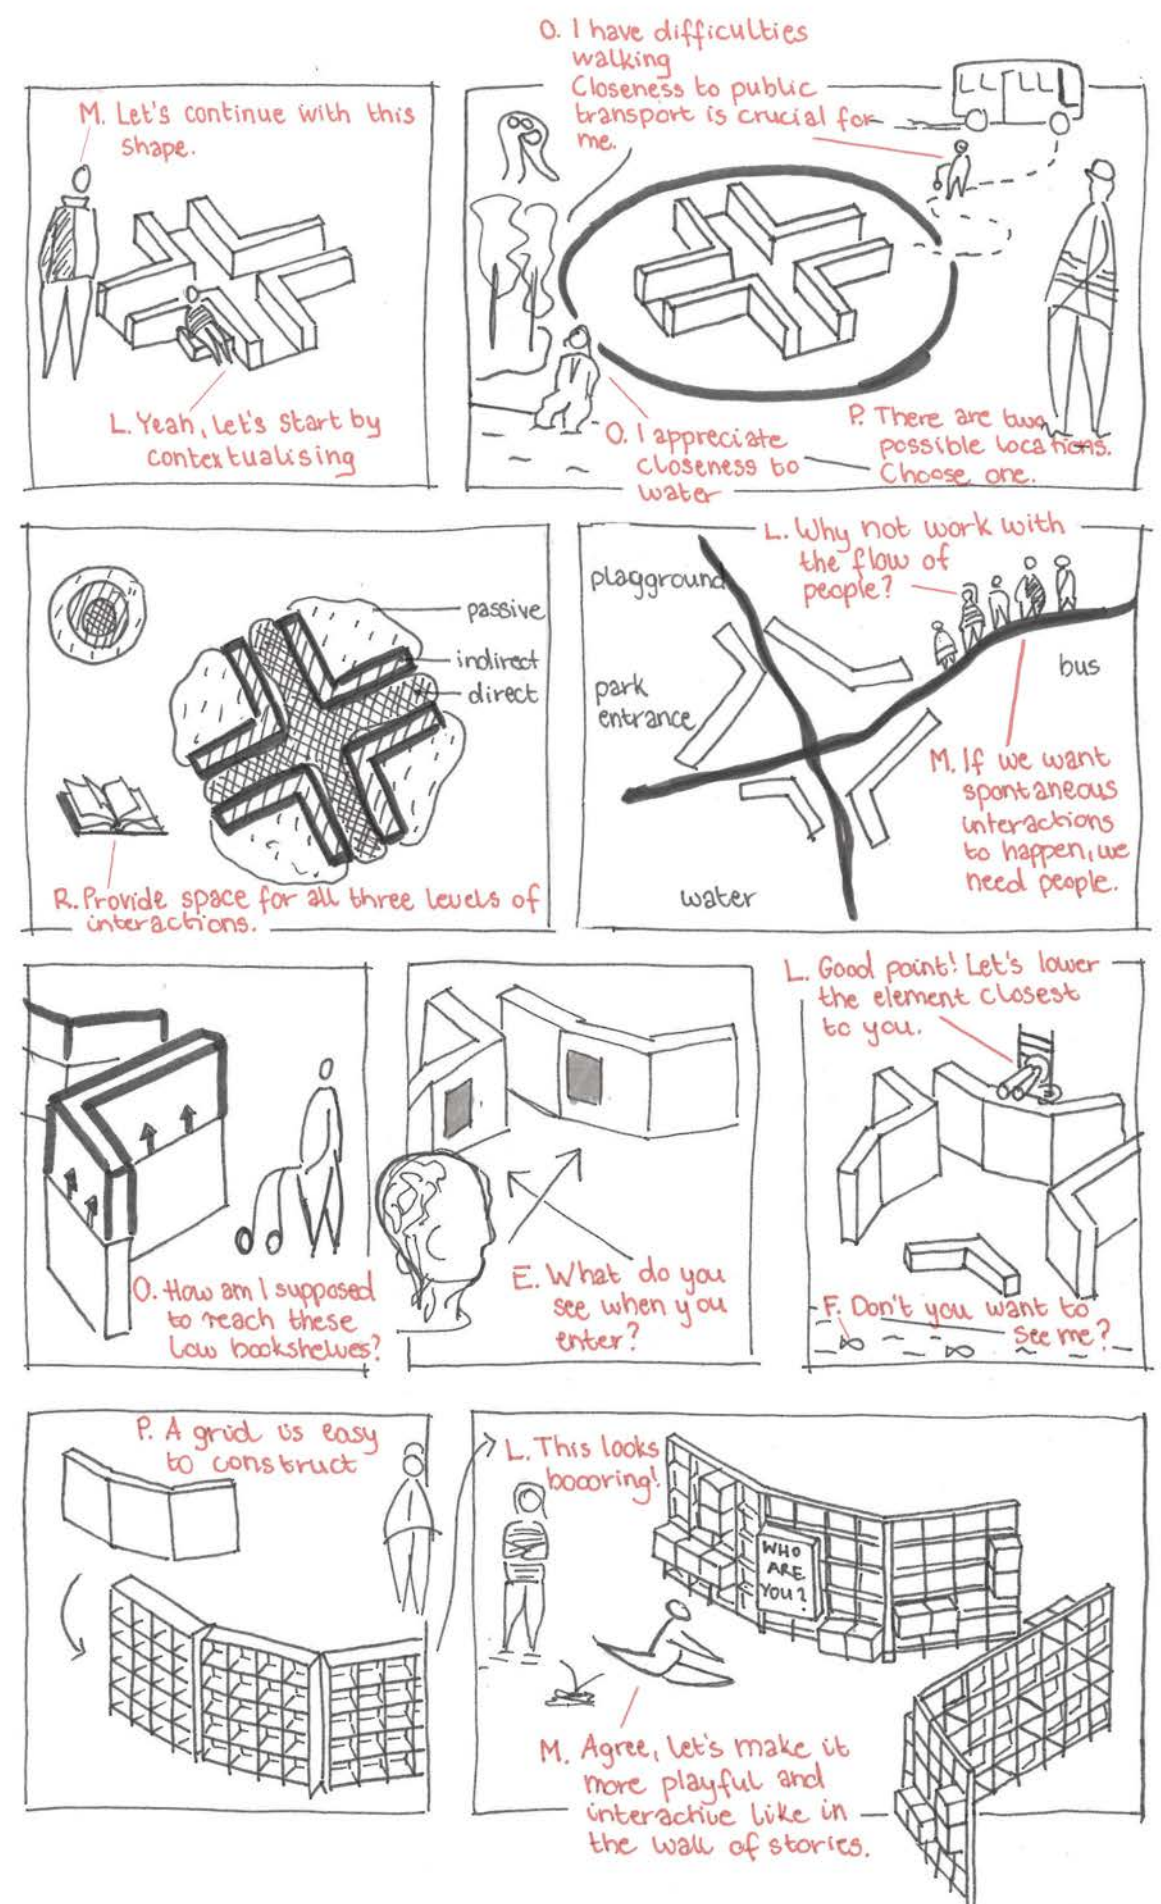 M. Let's continue with this
shape.
L. Yeah, let's start by
contextualising
O. I have difficulties
walking
Closeness to public
transport is crucial for
me.
O. I appreciate
closeness to
water
P. There are two
possible locations.
Choose one.
passive
indirect
direct
R. Provide space for all three levels of
interactions.
L. Why not work with
the flow of
people?
plagground
park
entrance
bus
M. If we want
spontaneous
interactions
to happen, we
need people.
water
O. How am I supposed
to reach these
low bookshelves?
E. What do you
see when you
enter?
L. Good point! Let's lower
the element closest
to you.
F. Don't you want to
see me?
P. A grid is easy
to construct
L. This looks
boooring!
WHO
ARE
YOU?
M. Agree, let's make it
more playful and
interactive like in
the wall of stories.